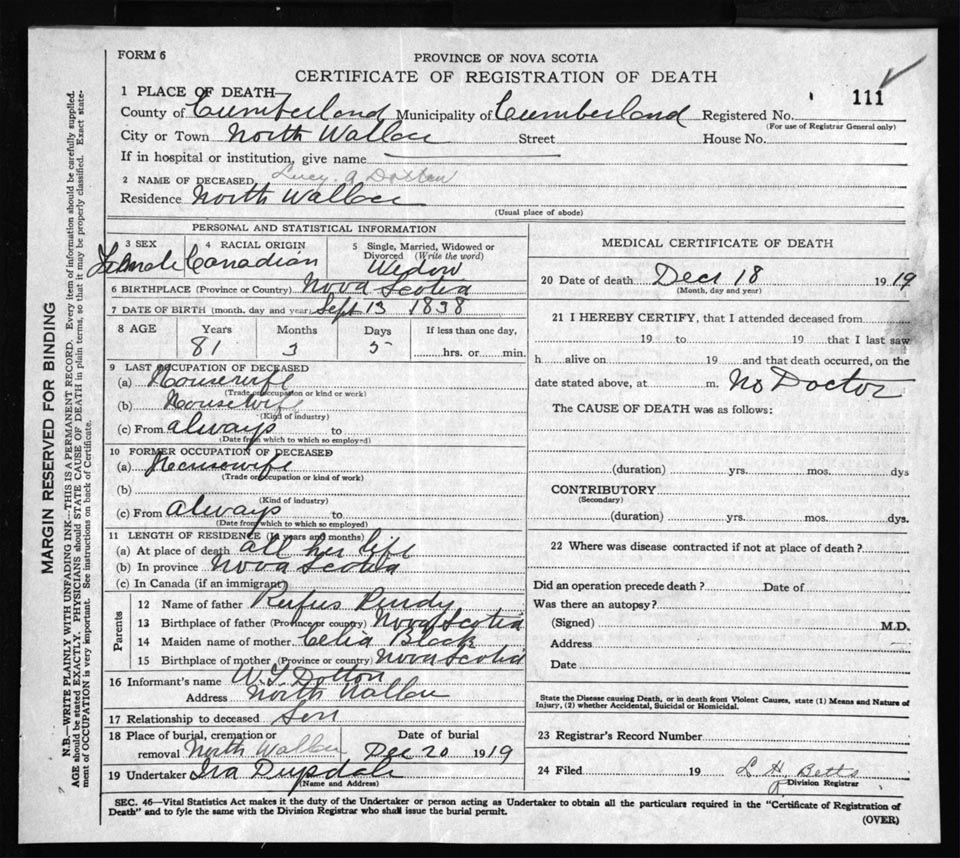 FORM 6
PROVINCE OF NOVA SCOTIA
CERTIFICATE OF REGISTRATION OF DEATH
111
1 PLACE OF DEATH
County of Cumberland Municipality of Cumberland Registered No.
(For use of Registrar General only)
City or Town North Wallace Street House No.
If in hospital or institution, give name
2 NAME OF DECEASED Lucy. A Dotten
Residence North Wallace
(Usual place of abode)
PERSONAL AND STATISTICAL INFORMATION
3 SEX 4 RACIAL ORIGIN 5 Single, Married, Widowed or Divorced (Write the word)
Female Canadian Widow
6 BIRTHPLACE (Province or Country) Nova Scotia
7 DATE OF BIRTH (month, day and year) Sept 13 1838
8 AGE Years Months Days If less than one day,
81 3 5 hrs. or min.
9 LAST OCCUPATION OF DECEASED
(a) Housewife
(Trade or occupation or kind of work)
(b) Housewife
(Kind of industry)
(c) From always to
(Date from which to which so employed)
10 FORMER OCCUPATION OF DECEASED
(a) Housewife
(Trade or occupation or kind of work)
(b)
(Kind of industry)
(c) From always to
(Date from which to which so employed)
11 LENGTH OF RESIDENCE (In years and months)
(a) At place of death all her life
(b) In province Nova Scotia
(c) In Canada (if an immigrant)
Parents
12 Name of father Rufus Purdy
13 Birthplace of father (Province or country) Nova Scotia
14 Maiden name of mother Celia Black
15 Birthplace of mother (Province or country) Nova Scotia
16 Informant's name W. Dotton
Address North Wallace
17 Relationship to deceased Son
18 Place of burial, cremation or Date of burial
removal North Wallace Dec 20 1919
19 Undertaker Ira
(Name and Address)
MEDICAL CERTIFICATE OF DEATH
20 Date of death Dec 18 1919
(Month, day and year)
21 I HEREBY CERTIFY, that I attended deceased from
19 to 19 that I last saw
h alive on 19 and that death occurred, on the
date stated above, at m. No Doctor
The CAUSE OF DEATH was as follows:
(duration) yrs. mos. dys
CONTRIBUTORY
(Secondary)
(duration) yrs. mos. dys.
22 Where was disease contracted if not at place of death?
Did an operation precede death? Date of
Was there an autopsy?
(Signed) M.D.
Address
Date
State the Disease causing Death, or in death from Violent Causes, state (1) Means and Nature of
Injury, (2) whether Accidental, Suicidal or Homicidal.
23 Registrar's Record Number
24 Filed 19 L. H. Betts
Division Registrar
SEC. 46—Vital Statistics Act makes it the duty of the Undertaker or person acting as Undertaker to obtain all the particulars required in the "Certificate of Registration of
Death" and to fyle the same with the Division Registrar who shall issue the burial permit.
(OVER)
MARGIN RESERVED FOR BINDING
N.B.—WRITE PLAINLY WITH UNFADING INK—THIS IS A PERMANENT RECORD. Every item of information should be carefully supplied.
AGE should be stated EXACTLY. PHYSICIANS should STATE CAUSE OF DEATH in plain terms, so that it may be properly classified. Exact state-
ment of OCCUPATION is very important. See instructions on back of Certificate.